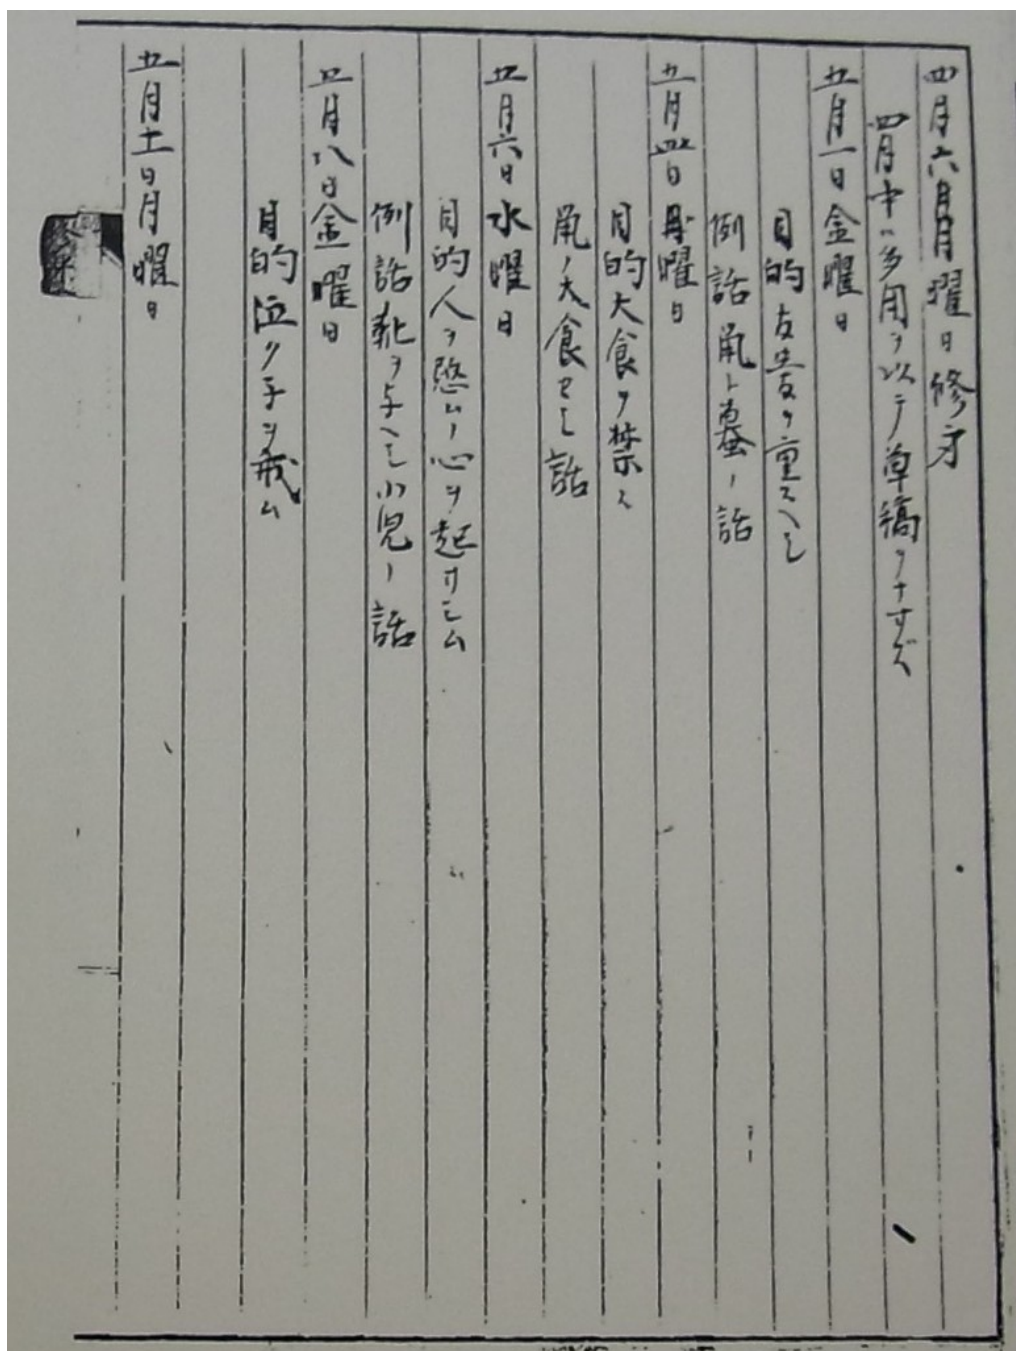 四月六日月曜日修身
四月中ハ多用ヲ以テ草稿ヲナサズ
五月一日金曜日
目的友愛ヲ重スヘシ
例話鼠ト蟇ノ話
五月四日月曜日
目的大食ヲ禁ス
鼠ノ大食セシ話
五月六日水曜日
目的人ヲ愍ムノ心ヲ起サシム
例話靴ヲ与ヘシ小児ノ話
五月八日金曜日
目的泣ク子ヲ戒ム
五月十一日月曜日